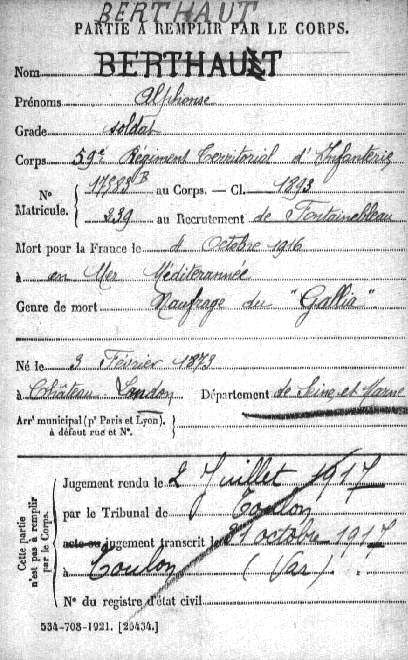 BERTHAUT
PARTIE À REMPLIR PAR LE CORPS.
Nom BERTHAULT
Prénoms Alphonse
Grade soldat
Corps 59e Régiment Territorial d'Infanterie
N° Matricule. { 17583 B au Corps. — Cl. 1893
239 au Recrutement de Fontainebleau
Mort pour la France le 4 Octobre 1916
à en Mer Méditerannée
Genre de mort Naufrage du "Gallia"
Né le 3 Février 1873
à Château-Landon Département de Seine et Marne
Arrt municipal (pr Paris et Lyon), à défaut rue et N°. }
Cette partie n'est pas à remplir par le Corps.
Jugement rendu le 2 Juillet 1917
par le Tribunal de Toulon
acte ou jugement transcrit le 31 octobre 1917
à Toulon (Var)
N° du registre d'état civil
534-708-1921. [26434.]